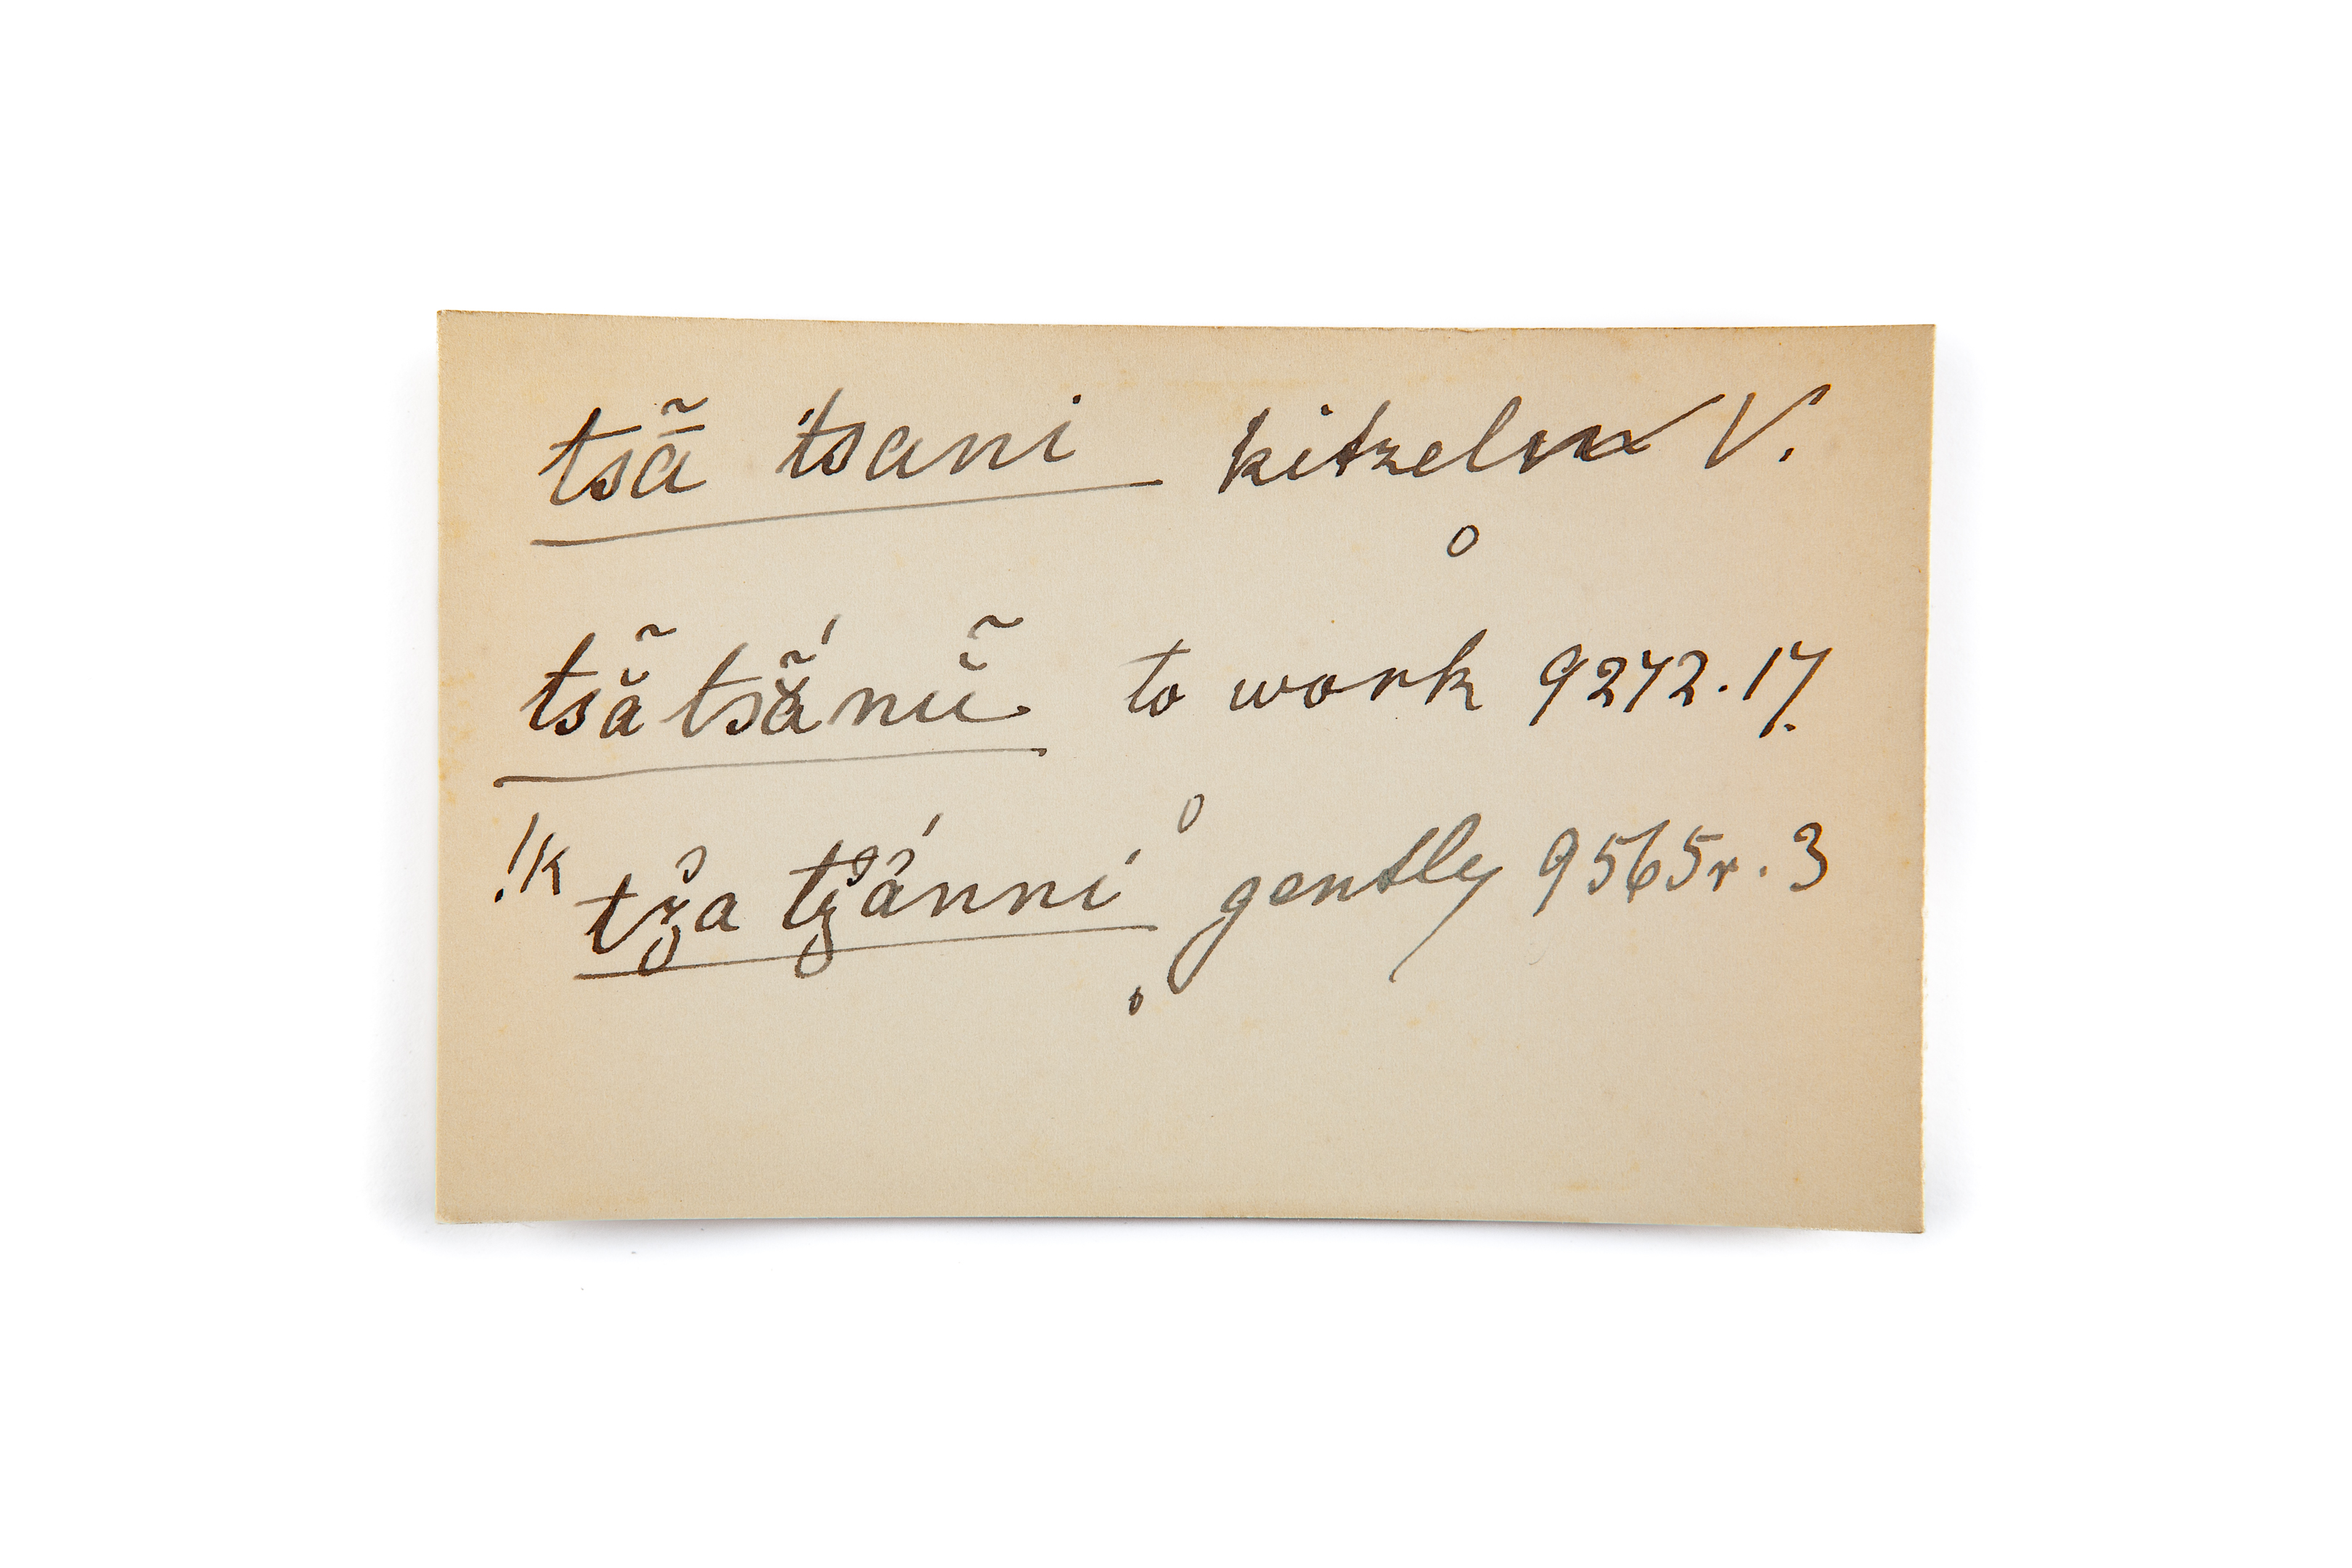 tsā̃ ʹtsani kitzeln V.
o
tsẵ tsã́nŭ̃ to work 9272.17.
o
!k tʒ̓a tʒ̓ánni gently 9565r.3
o